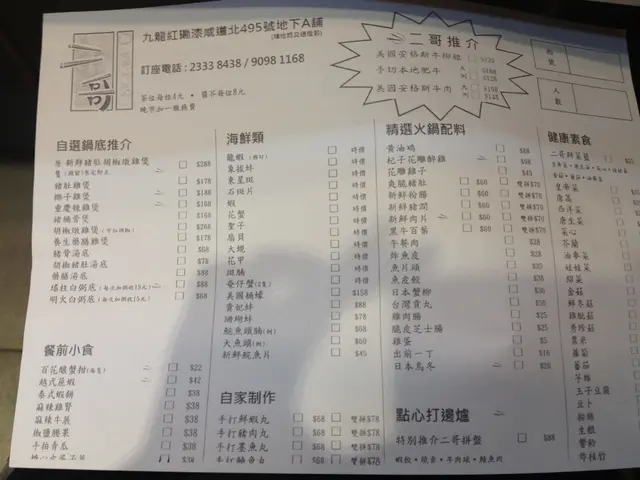 二哥
九龍紅磡漆咸道北495號地下A舖
訂座電話：2333 8438 / 9098 1168
茶位每位4元 • 醬芥每位8元
晚市加一服務費
二哥推介
美國安格斯牛柳粒 $128
手切本地肥牛 $188 $128
美國安格斯牛肉 $158 $148
枱號
人數
自選鍋底推介
原隻新鮮豬肚胡椒燉雞煲 $288
豬肚雞煲 $178
椰子雞煲 $188
重慶辣雞煲 $168
豬橫骨煲 $168
胡椒燉雞煲 $268
養生藥膳雞煲 $178
豬骨湯底 $68
胡椒豬肚湯底 $78
藥膳湯底 $88
瑤柱白粥底 $88
明火白粥底 $68
餐前小食
百花釀蟹柑 $22
越式蔗蝦 $42
泰式蝦餅 $38
麻辣雞腎 $38
麻辣牛𦟌 $38
椒鹽腰果 $38
手拍青瓜 $38
海鮮類
龍蝦 時價
象拔蚌 時價
東星斑 時價
石斑片 時價
蝦 時價
花蟹 時價
聖子 時價
扇貝 時價
大蜆 時價
花甲 時價
斑腩 時價
奄仔蟹 時價
美國桶蠔 $158
貴妃蚌 $88
珊瑚蚌 $78
鯇魚頭腩 $68
大魚頭 $60
新鮮鯇魚片 $45
自家制作
手打鮮蝦丸 $68 雙拼$78
手打豬肉丸 $68 雙拼$78
手打墨魚丸 $68 雙拼$78
手打鯪魚丸 $68 雙拼$78
精選火鍋配料
黃油鴨 $88
杞子花雕醉雞 $98
花雕雞子 $45
爽脆豬肚 $60 雙拼$78
新鮮粉腸 $60 雙拼$78
新鮮豬膶 $60 雙拼$78
新鮮肉片 $60 雙拼$78
黑牛百葉 $60 雙拼$78
午餐肉 $38
炸魚皮 $38
魚片頭 $35
魚皮餃 $38
日本蟹柳 $30
台灣貢丸 $50
雞肉腸 $25
脆皮芝士腸 $35
雞蛋 $5
出前一丁 $16
日本烏冬 $20
點心打邊爐
特別推介二哥拼盤 $88
蝦餃 • 燒賣 • 牛肉球 • 鯪魚肉
健康素食
二哥鮮菜籃
皇帝菜
唐蒿
西洋菜
唐生菜
菜心
芥蘭
油麥菜
娃娃菜
紹菜
金菇
鮮冬菇
雞髀菇
秀珍菇
粟米
蘿蔔
蕃茄
芋絲
玉子豆腐
豆卜
粉絲
生根
響鈴
帶枝竹